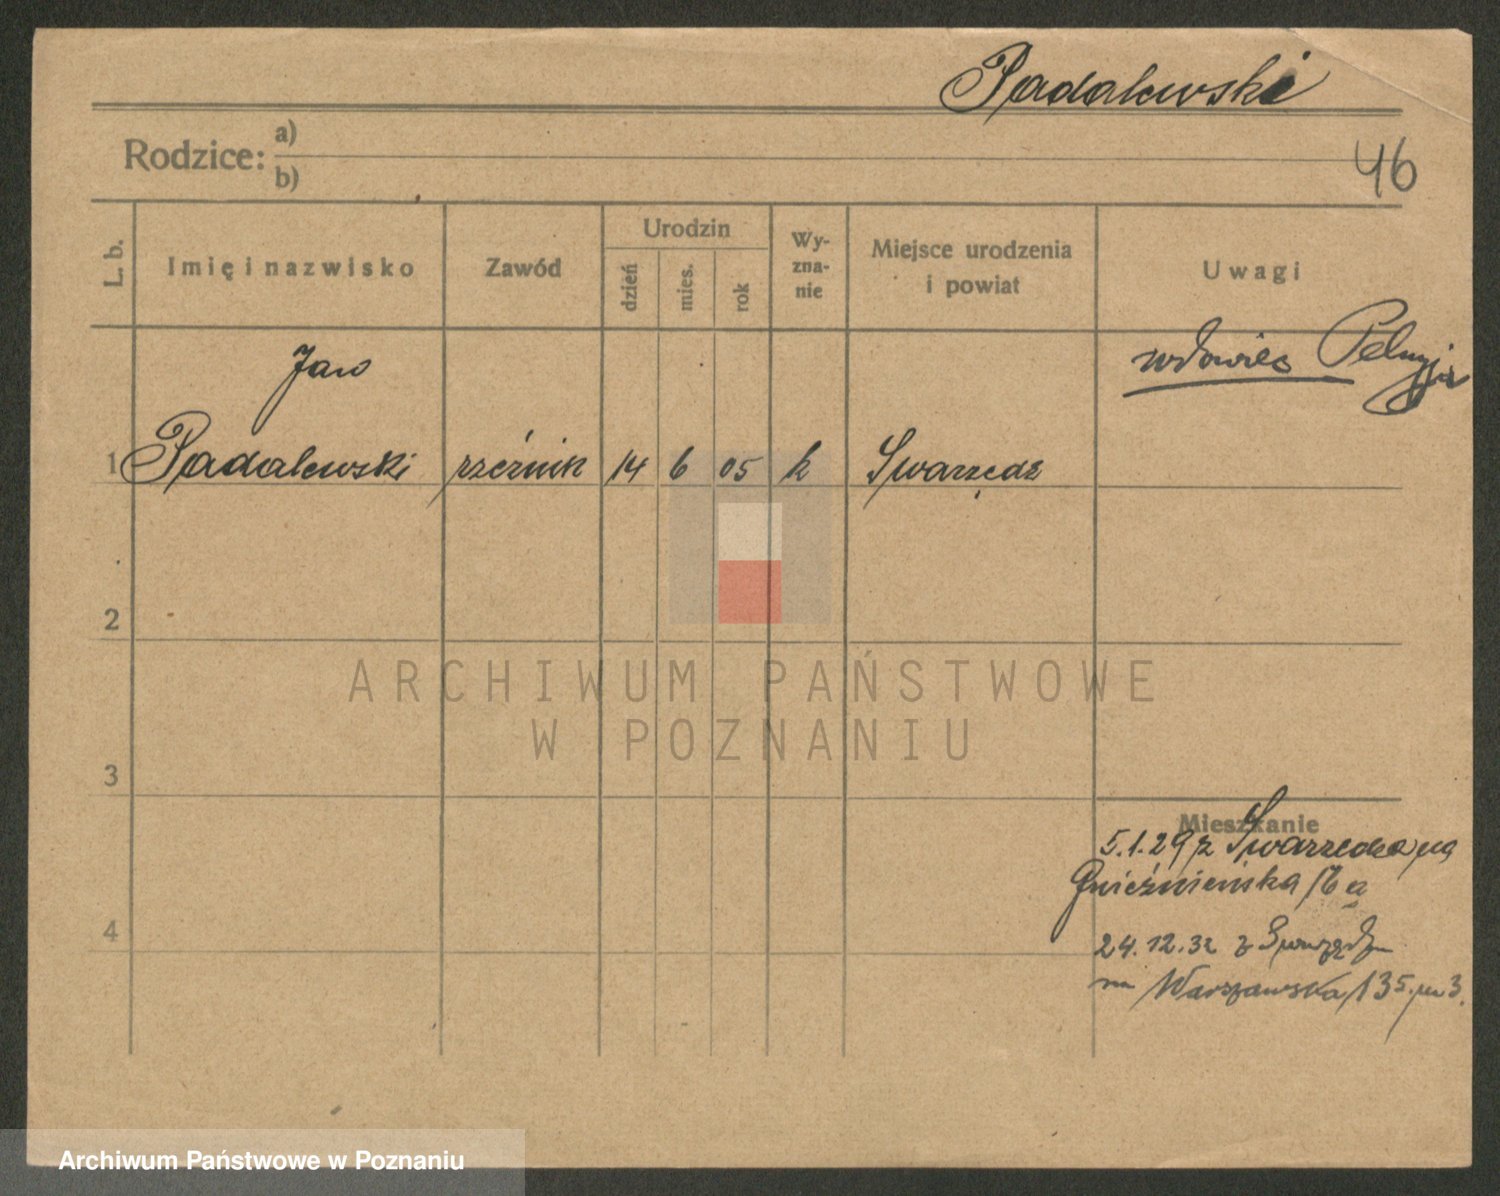 Padalewski
Rodzice: a)
b)
46
L. b.
Imię i nazwisko
Zawód
Urodzin
dzień
mies.
rok
Wy-
zna-
nie
Miejsce urodzenia
i powiat
Uwagi
Jan
wdowiec
1 Padalewski rzeźnik 14 6 05 k Swarzędz
2
ARCHIWUM PAŃSTWOWE
W POZNANIU
3
Mieszkanie
5.1.29 z Swarzędza na
Gnieźnieńska
4
24.12.32 z Swarzędza
na Warszawska 135. m 3.
Archiwum Państwowe w Poznaniu